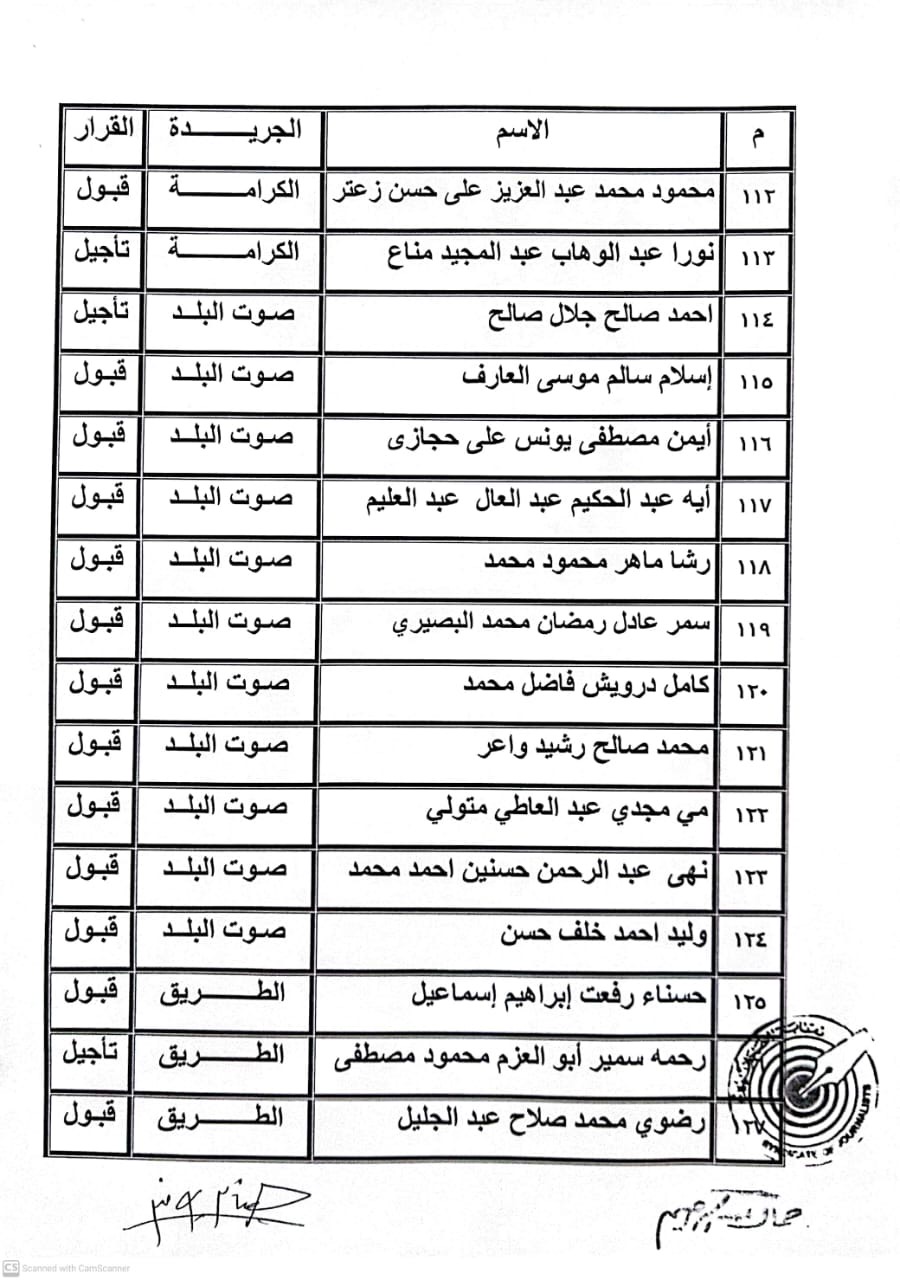 م الاسم الجريـــــــدة القرار
١١٢ محمود محمد عبد العزيز على حسن زعتر الكرامـــــــة قبول
١١٣ نورا عبد الوهاب عبد المجيد مناع الكرامـــــــة تأجيل
١١٤ احمد صالح جلال صالح صوت البلـد تأجيل
١١٥ إسلام سالم موسى العارف صوت البلـد قبول
١١٦ أيمن مصطفى يونس على حجازى صوت البلـد قبول
١١٧ أيه عبد الحكيم عبد العال عبد العليم صوت البلـد قبول
١١٨ رشا ماهر محمود محمد صوت البلـد قبول
١١٩ سمر عادل رمضان محمد البصيري صوت البلـد قبول
١٢٠ كامل درويش فاضل محمد صوت البلـد قبول
١٢١ محمد صالح رشيد واعر صوت البلـد قبول
١٢٢ مي مجدي عبد العاطي متولي صوت البلـد قبول
١٢٣ نهى عبد الرحمن حسنين احمد محمد صوت البلـد قبول
١٢٤ وليد احمد خلف حسن صوت البلـد قبول
١٢٥ حسناء رفعت إبراهيم إسماعيل الطـــــــريق قبول
رحمه سمير أبو العزم محمود مصطفى الطـــــــريق تأجيل
١٢٧ رضوي محمد صلاح عبد الجليل الطـــــــريق قبول
OF JOURNALISTS
CS Scanned with CamScanner